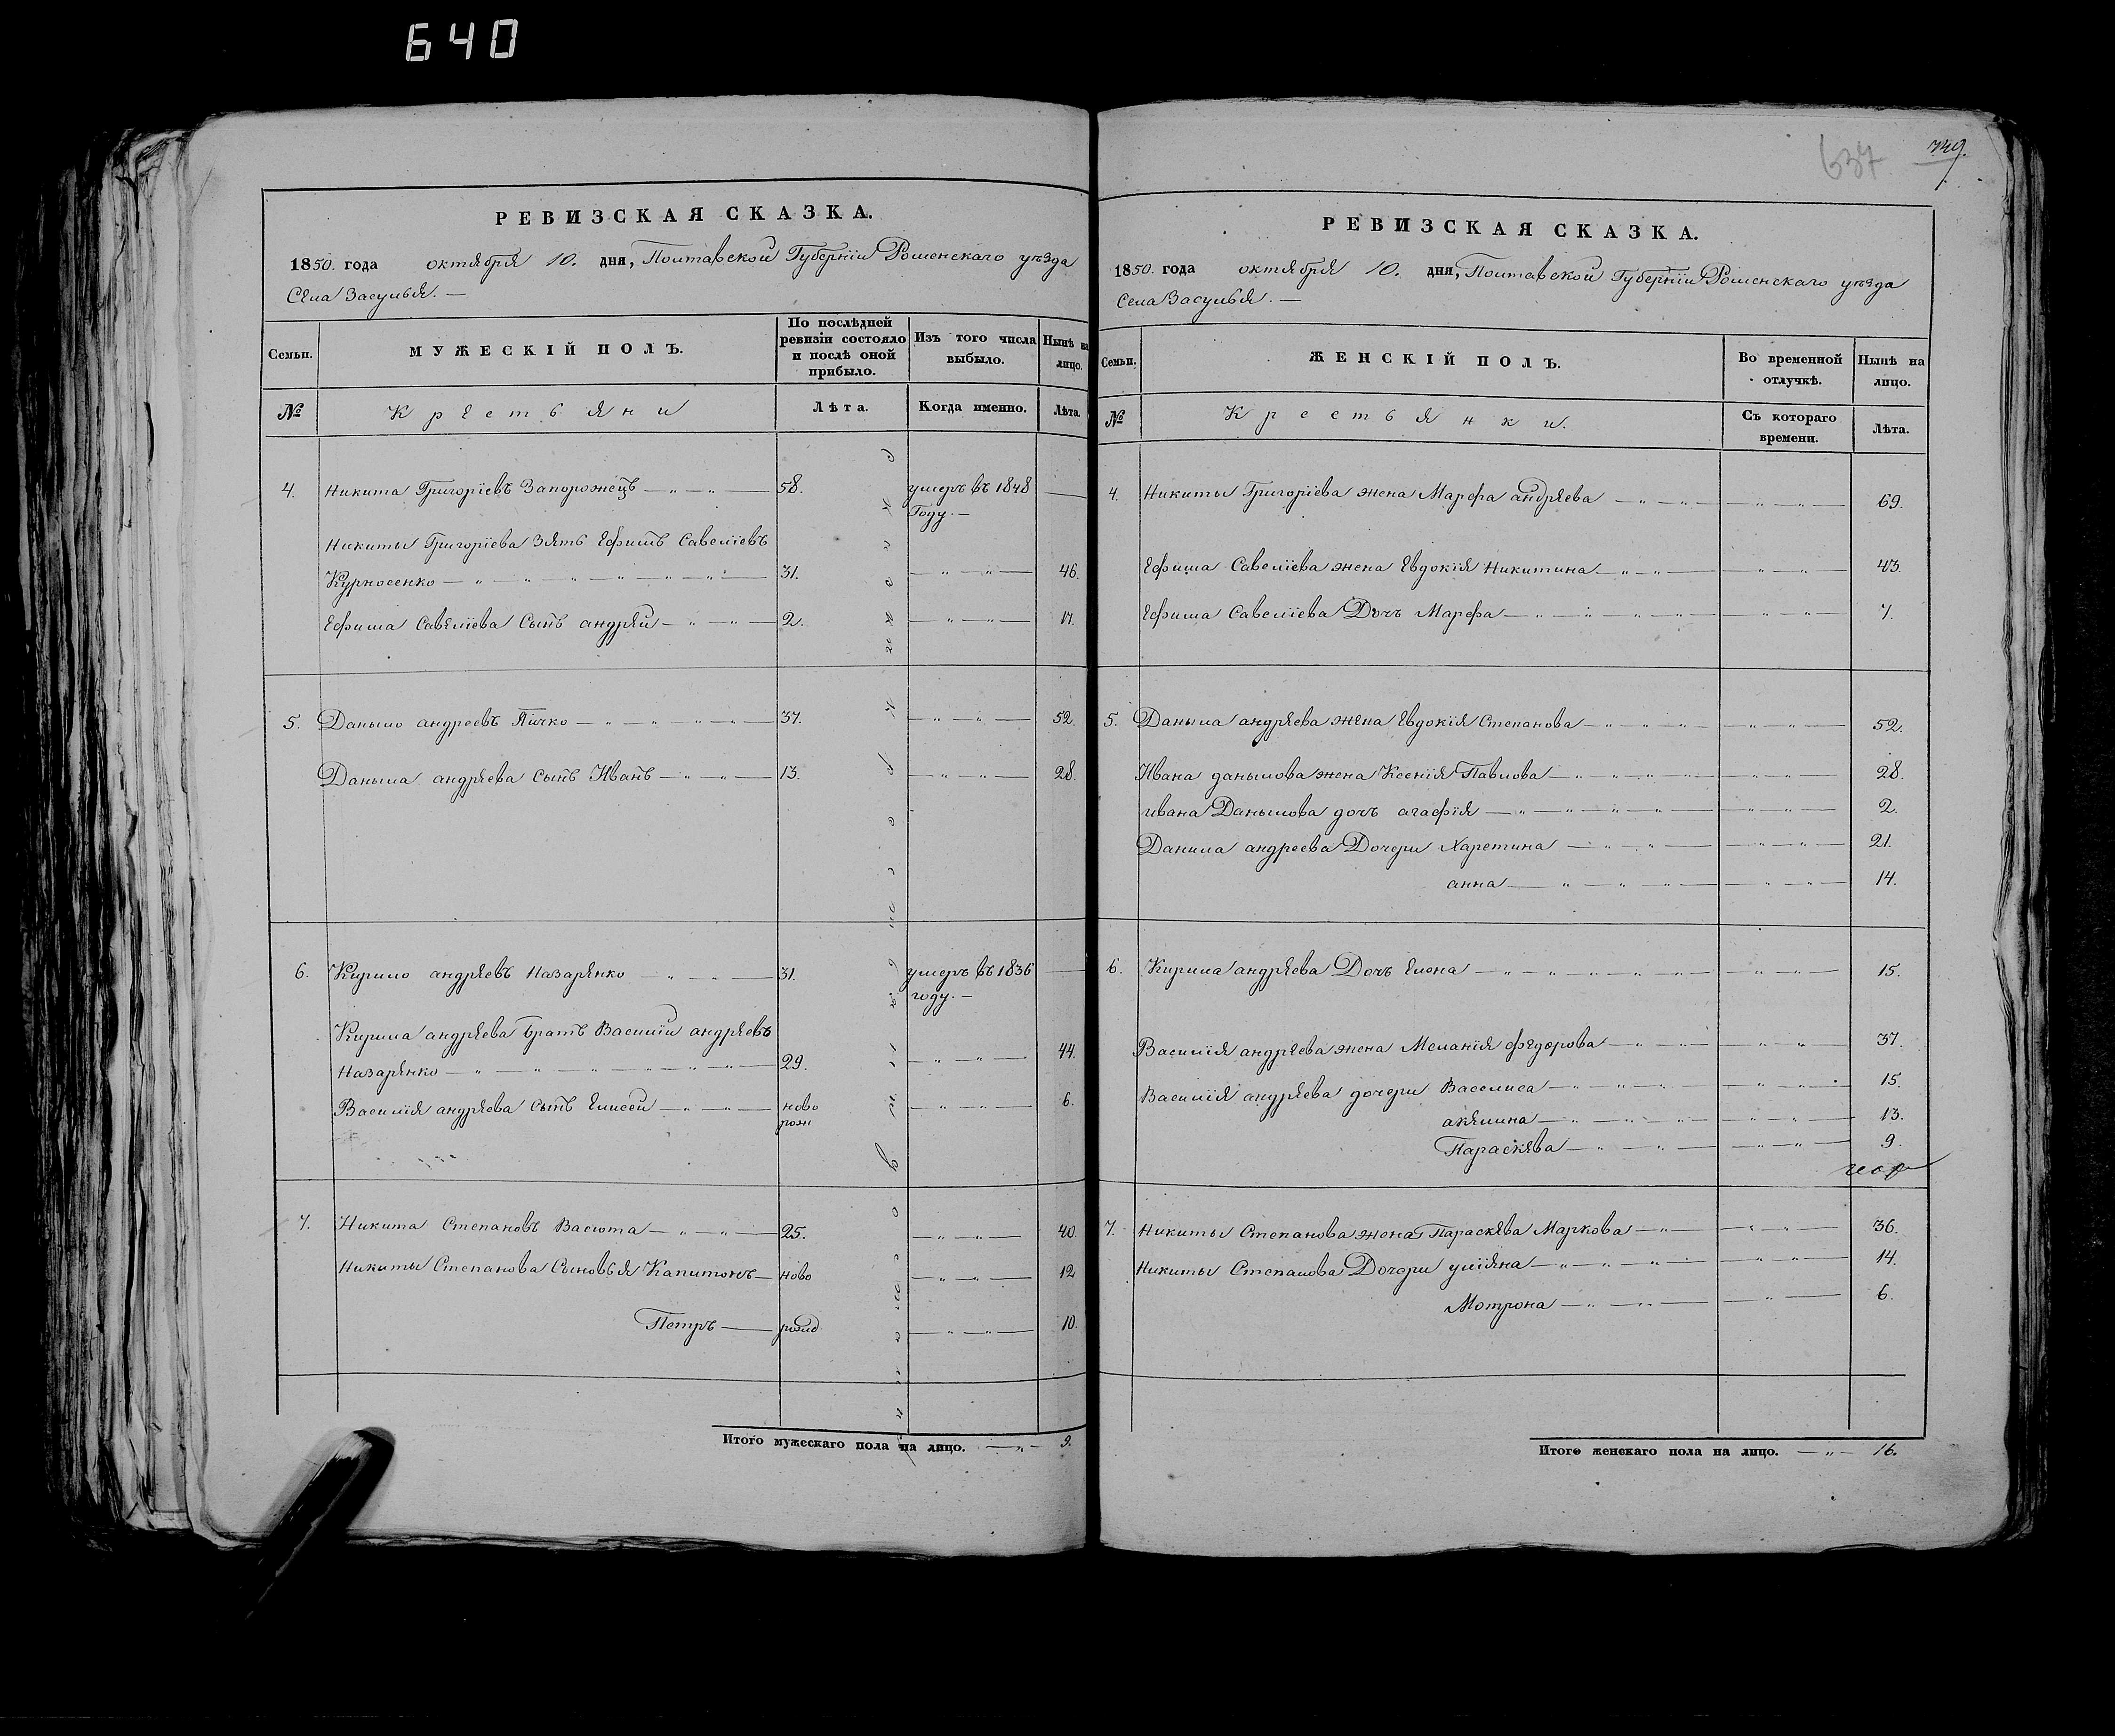 640
637
749.
РЕВИЗСКАЯ СКАЗКА.
1850. года октября 10. дня, Полтавской Губерніи Роменскаго уѣзда
Села Засулья. —
Семьи.
МУЖЕСКІЙ ПОЛЪ.
По послѣдней ревизіи состояло и послѣ оной прибыло.
Изъ того числа выбыло.
Нынѣ на лицо.
№
Крестьяни
Лѣта.
Когда именно.
Лѣта.
4. Никита Григоріевъ Запорожецъ 58. умеръ въ 1848
Году. —
Никиты Григоріева Зять Ефимъ Савеліевъ
Курносенко 31. 46.
Ефима Савеліева Сынъ андрей 2. 17.
5. Даныло андреевъ Пичко 37. 52.
Даныла андреева сынъ Иванъ 13. 28.
6. Кирило андреевъ Назаренко 31. умеръ въ 1836
году. —
Кирила андреева братъ Василій андреевъ
Назаренко 29. 44.
Василія андреева сынъ Елисей ново 6.
рож
7. Никита Степановъ Васюта 25. 40.
Никиты Степанова Сыновья Капитонъ ново 12
Петръ рожд 10.
Итого мужескаго пола на лицо. 9.
РЕВИЗСКАЯ СКАЗКА.
1850. года октября 10. дня, Полтавской Губерніи Роменскаго уѣзда
Села Засулья. —
Семьи.
ЖЕНСКІЙ ПОЛЪ.
Во временной отлучкѣ.
Нынѣ на лицо.
№
Крестьянки.
Съ котораго времени.
Лѣта.
4. Никиты Григоріева жена Марфа андреева 69.
Ефима Савеліева жена Евдокія Никитина 43.
Ефима Савеліева Дочъ Марфа 7.
5. Даныла андреева жена Евдокія Степанова 52.
Ивана данылова жена Ксенія Павлова 28.
ивана Данылова дочъ агафія 2.
Данила андреева Дочери Харетина 21.
анна 14.
6. Кирила андреева Дочъ Елена 15.
Василія андреева жена Меланія федорова 37.
Василія андреева дочери Василиса 15.
акелина 13.
Параскева 9.
7. Никиты Степанова жена Параскева Маркова 36.
Никиты Степанова Дочери уліяна 14.
Мотрона 6.
Итого женскаго пола на лицо. 16.